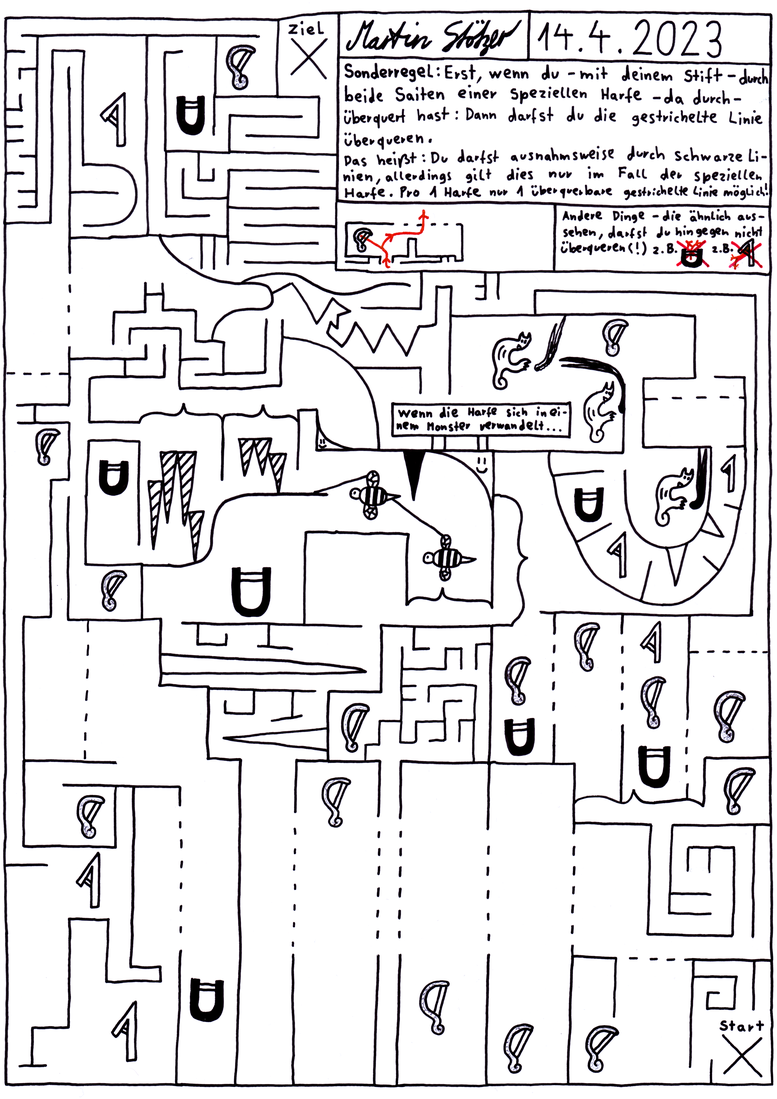 Ziel
Martin Stötzer
14.4.2023
Sonderregel: Erst, wenn du - mit deinem Stift - durch
beide Saiten einer speziellen Harfe - da durch-
überquert hast: Dann darfst du die gestrichelte Linie
überqueren.
Das heißt: Du darfst ausnahmsweise durch schwarze Li-
nien, allerdings gilt dies nur im Fall der speziellen
Harfe. Pro 1 Harfe nur 1 überquerbare gestrichelte Linie möglich!
Andere Dinge - die ähnlich aus-
sehen, darfst du hingegen nicht
überqueren(!) z.B. z.B.
Wenn die Harfe sich in ei-
nem Monster verwandelt...
Start